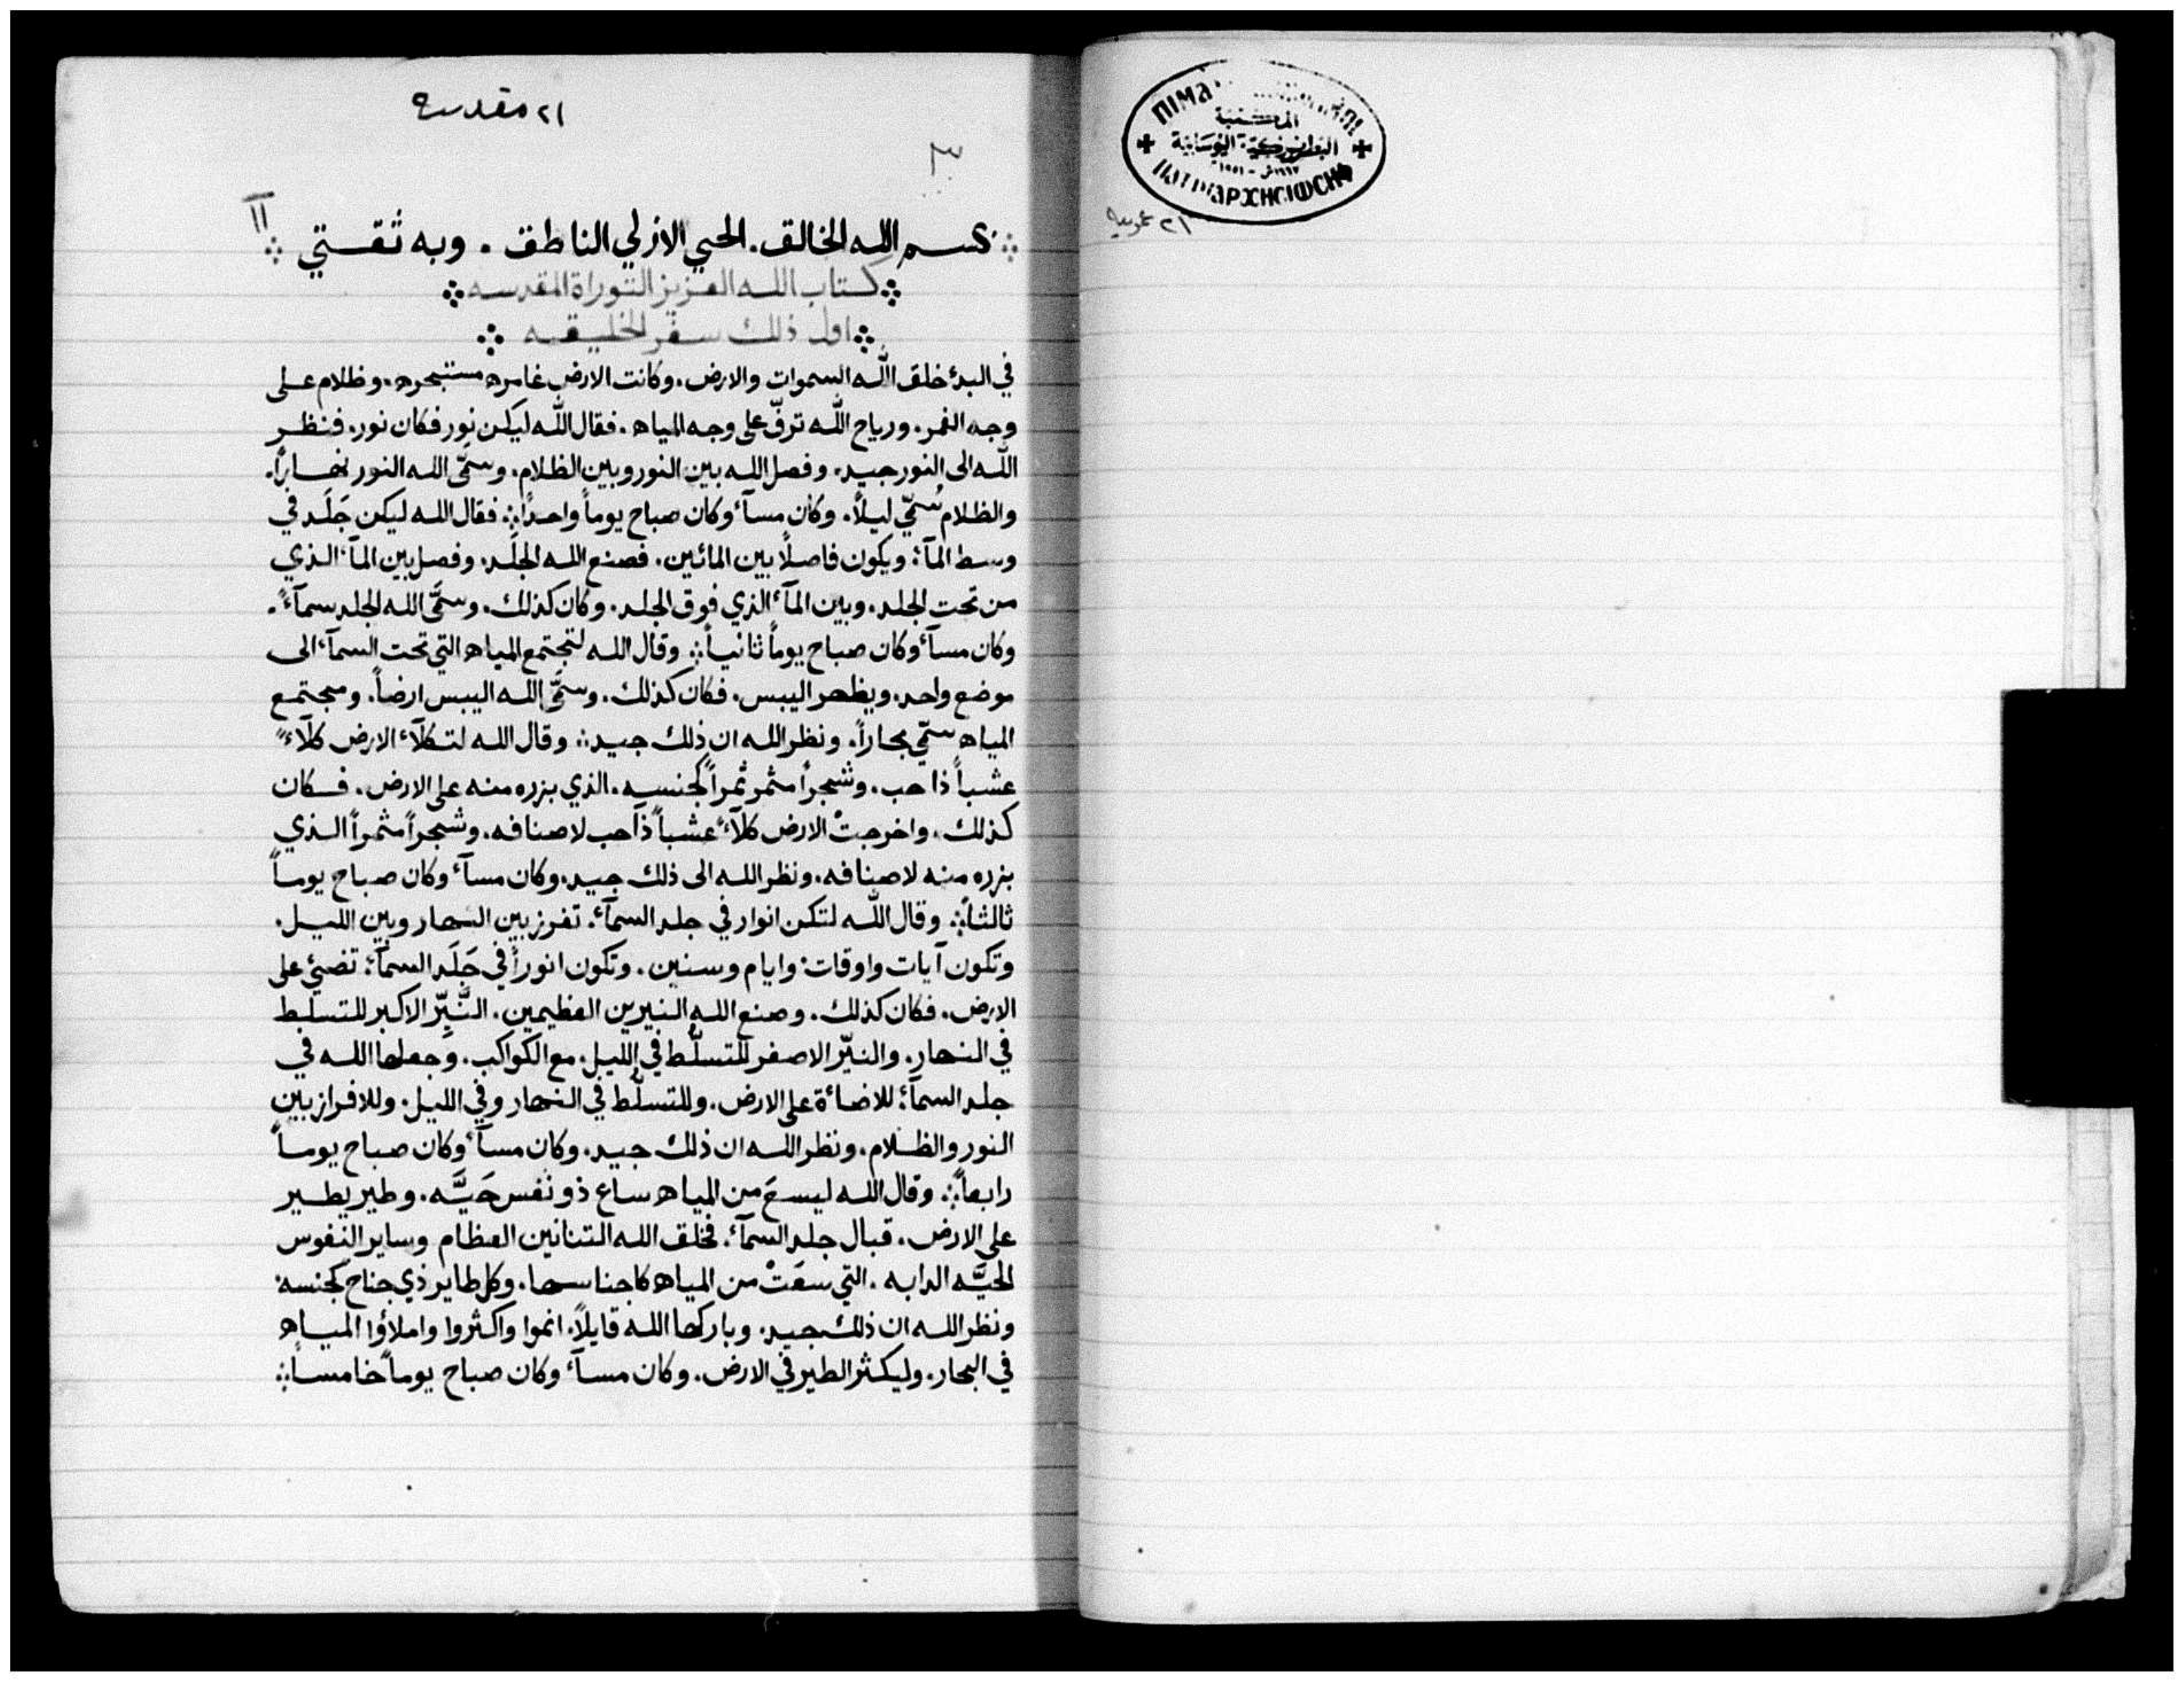 ٢١ مقدسة
٣
بسم الله الخالق. الحي الازلي الناطق . وبه ثقتي
كتاب الله العزيز التوراة المقدسه
اول ذلك سفر الخليقه
في البدء خلق الله السموات والارض. وكانت الارض غامره مستبحره. وظلام على
وجه الغمر. ورياح الله ترفّ على وجه المياه. فقال الله ليكن نور فكان نور. فنظر
الله الى النور جيد. وفصل الله بين النور وبين الظلام. وسمّى الله النور نهاراً.
والظلام سُمّي ليلاً. وكان مسآء وكان صباح يوماً واحداً؞ فقال الله ليكن جَلَد في
وسط المآء: ويكون فاصلاً بين المائين. فصنع الله الجلَد. وفصل بين المآء الذي
من تحت الجلد. وبين المآء الذي فوق الجلد. وكان كذلك. وسمَّى الله الجلد سمآءً.
وكان مسآء وكان صباح يوماً ثانياً؞ وقال الله لتجتمع المياه التي تحت السمآء الى
موضع واحد. ويظهر اليبس. فكان كذلك. وسمَّى الله اليبس ارضاً. ومجتمع
المياه سمّي بحاراً. ونظر الله ان ذلك جيد؞ وقال الله لتكلآء الارض كلآءً
عشباً ذا حب. وشجراً مثمر ثمراً كجنسه. الذي بزره منه على الارض. فكان
كذلك. واخرجتْ الارض كلآءً عشباً ذا حب لاصنافه. وشجراً مثمراً الذي
بزره منه لاصنافه. ونظر الله الى ذلك جيد. وكان مسآء وكان صباح يوماً
ثالثاً؞ وقال الله لتكن انوار في جلد السمآء. تفرز بين النهار وبين الليل.
وتكون آيات واوقات: وايام وسنين. وتكون انوراً في جَلَد السمآء: تضيئ على
الارض. فكان كذلك. وصنع الله النيرين العظيمين. النَّيِّر الاكبر للتسلط
في النهار. والنيّر الاصغر للتسلُّط في الليل. مع الكواكب. وجعلها الله في
جلد السمآء: للاضائة على الارض. وللتسلُّط في النهار وفي الليل. وللافراز بين
النور والظلام. ونظر الله ان ذلك جيد. وكان مسآء وكان صباح يوماً
رابعاً؞ وقال الله ليسعَ من المياه ساع ذو نفس حَيَّه. وطير يطير
على الارض. قبال جلد السمآء. فخلق الله التنانين العظام وساير النفوس
الحيَّه الدابه. التي سعَتْ من المياه كاجناسها. وكل طاير ذي جناح كجنسه:
ونظر الله ان ذلك جيد. وباركها الله قايلاً. انموا واكثروا واملاؤا المياه
في البحار. وليكثر الطير في الارض. وكان مسآء وكان صباح يوماً خامساً؞
٢١ عربية